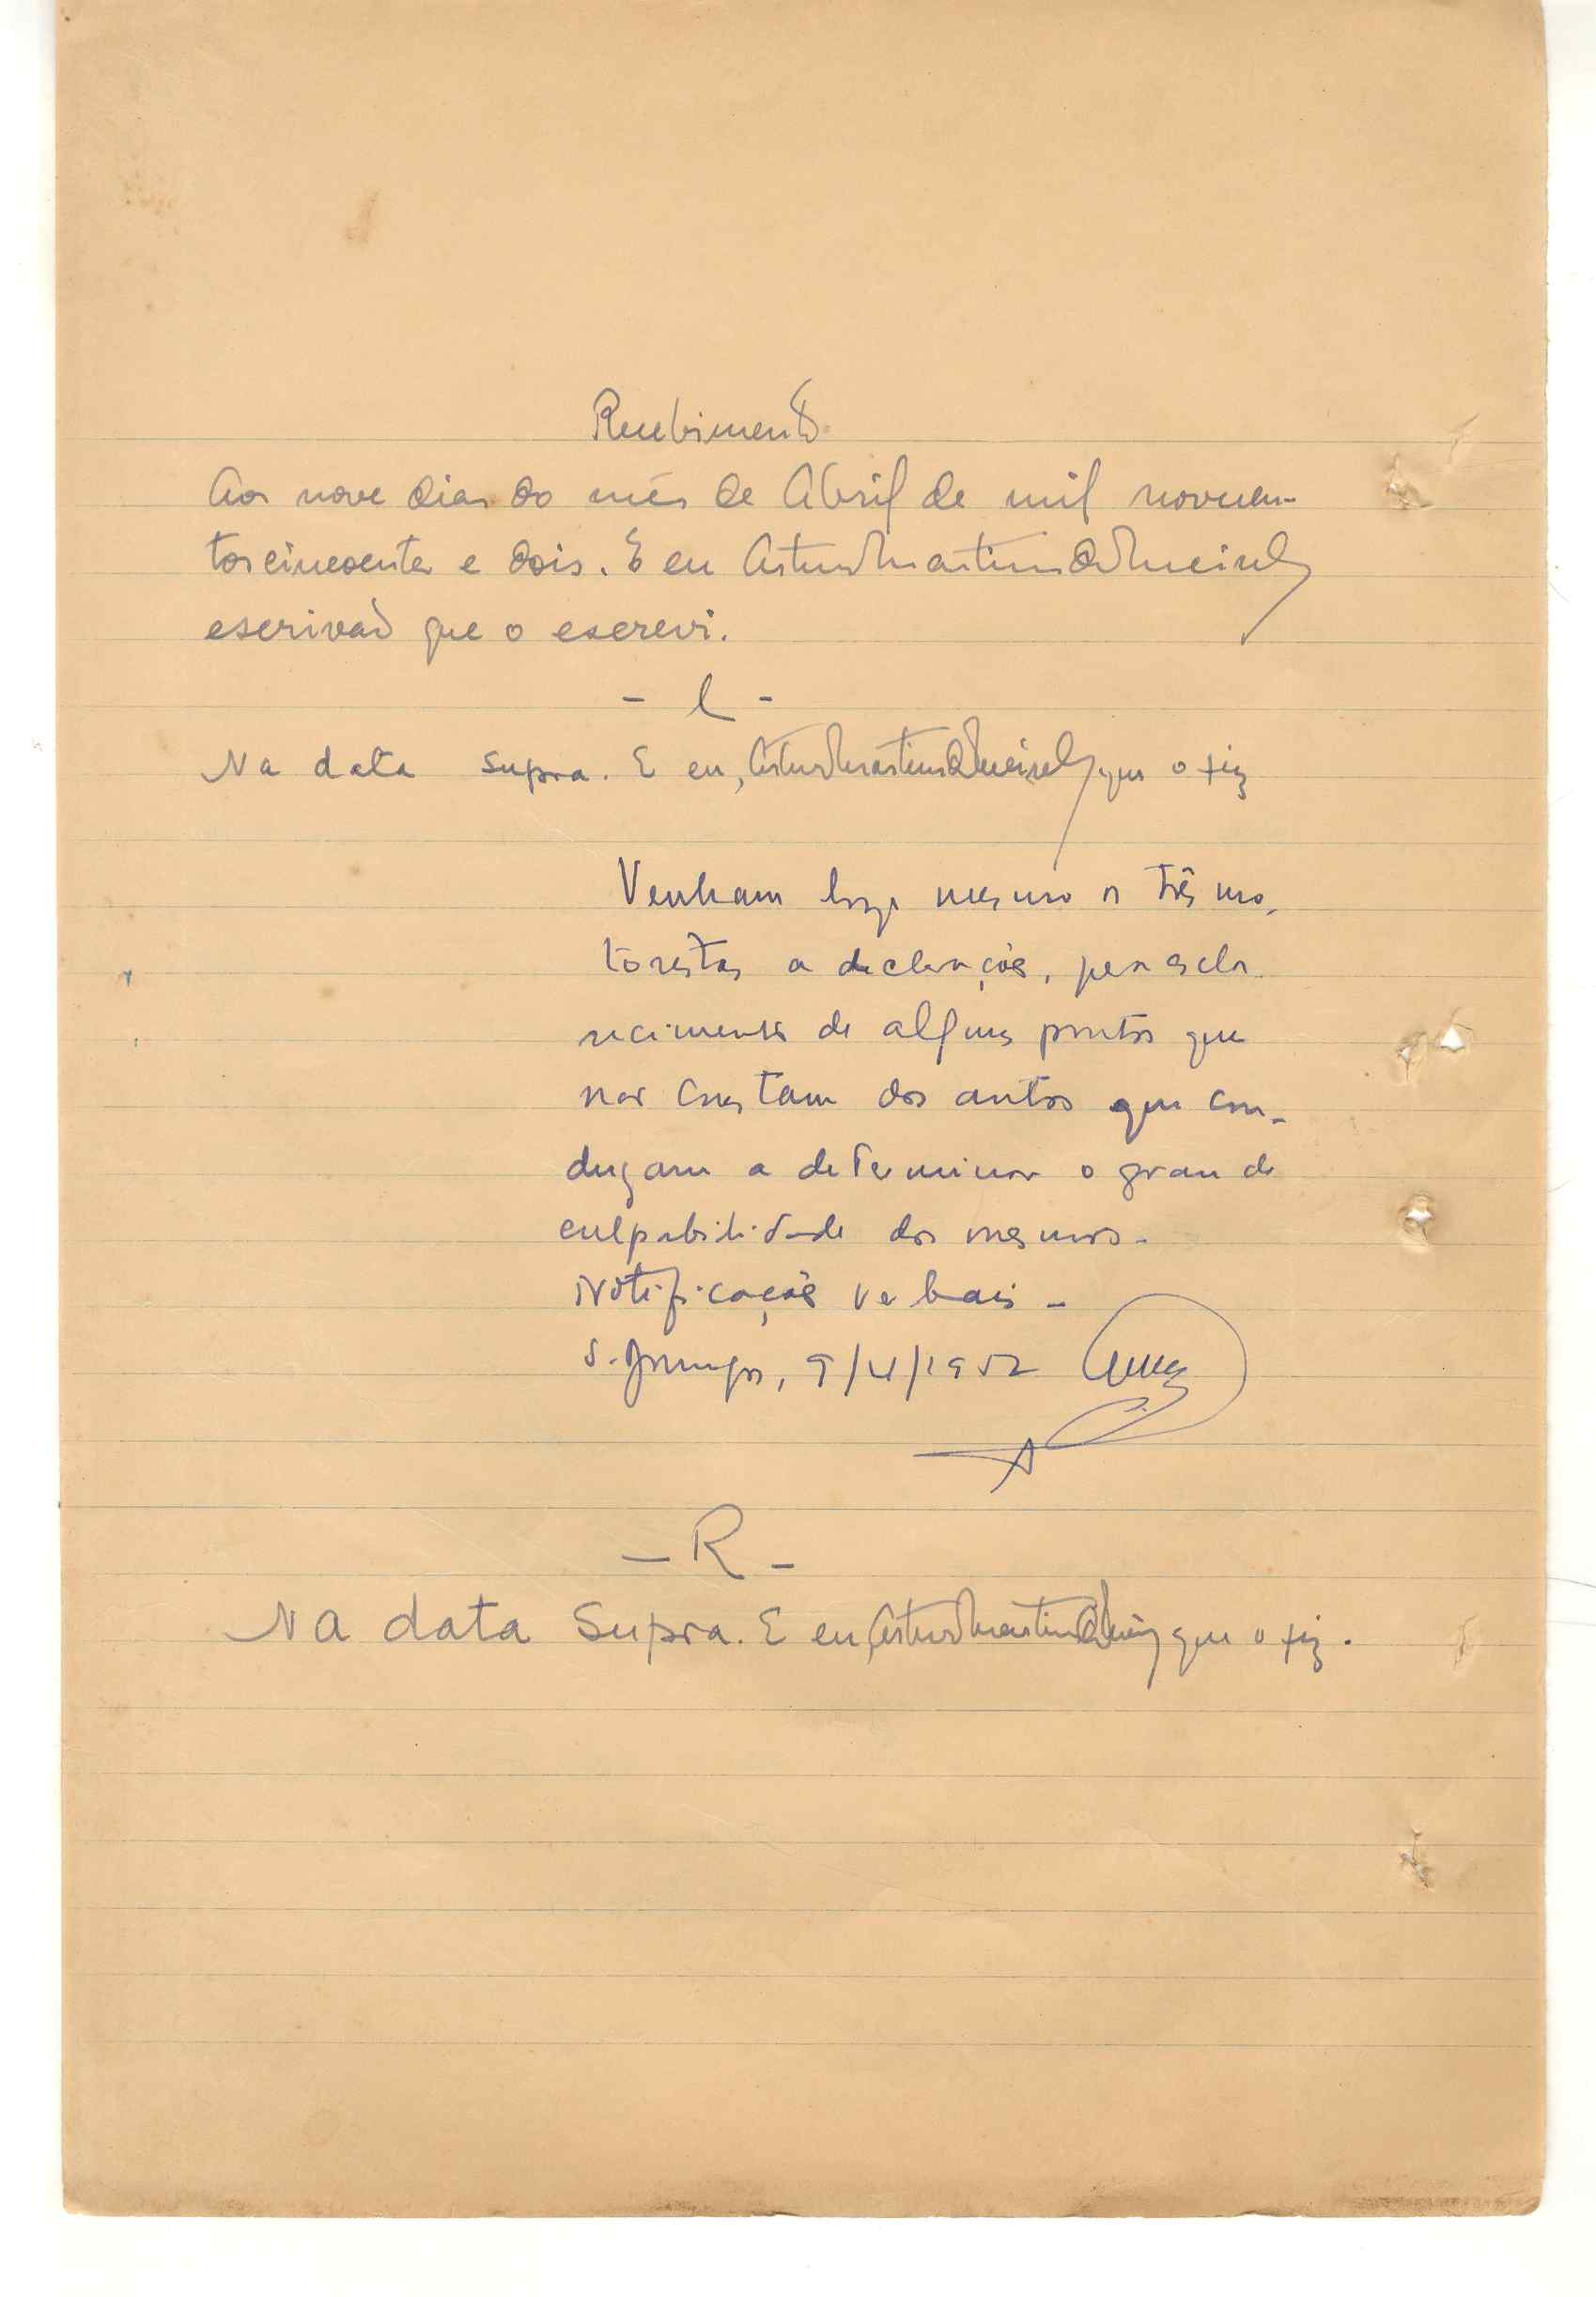 Recebimento
Aos nove dias do mês de Abril de mil novecen-
tos cincoenta e dois. E eu Artur Martins de Meireles
escrivão que o escrevi.
- C -
Na data supra. E eu, Artur Martins de Meireles que o fiz
Venham hoje mesmo os três mo-
toristas a declarações, para escla-
recimento de alguns pontos que
não constam dos autos que con-
duzam a determinar o grau de
culpabilidade dos mesmos.
Notificações verbais -
S. Domingos, 9/4/1952
- R -
Na data supra. E eu, Artur Martins de que o fiz.